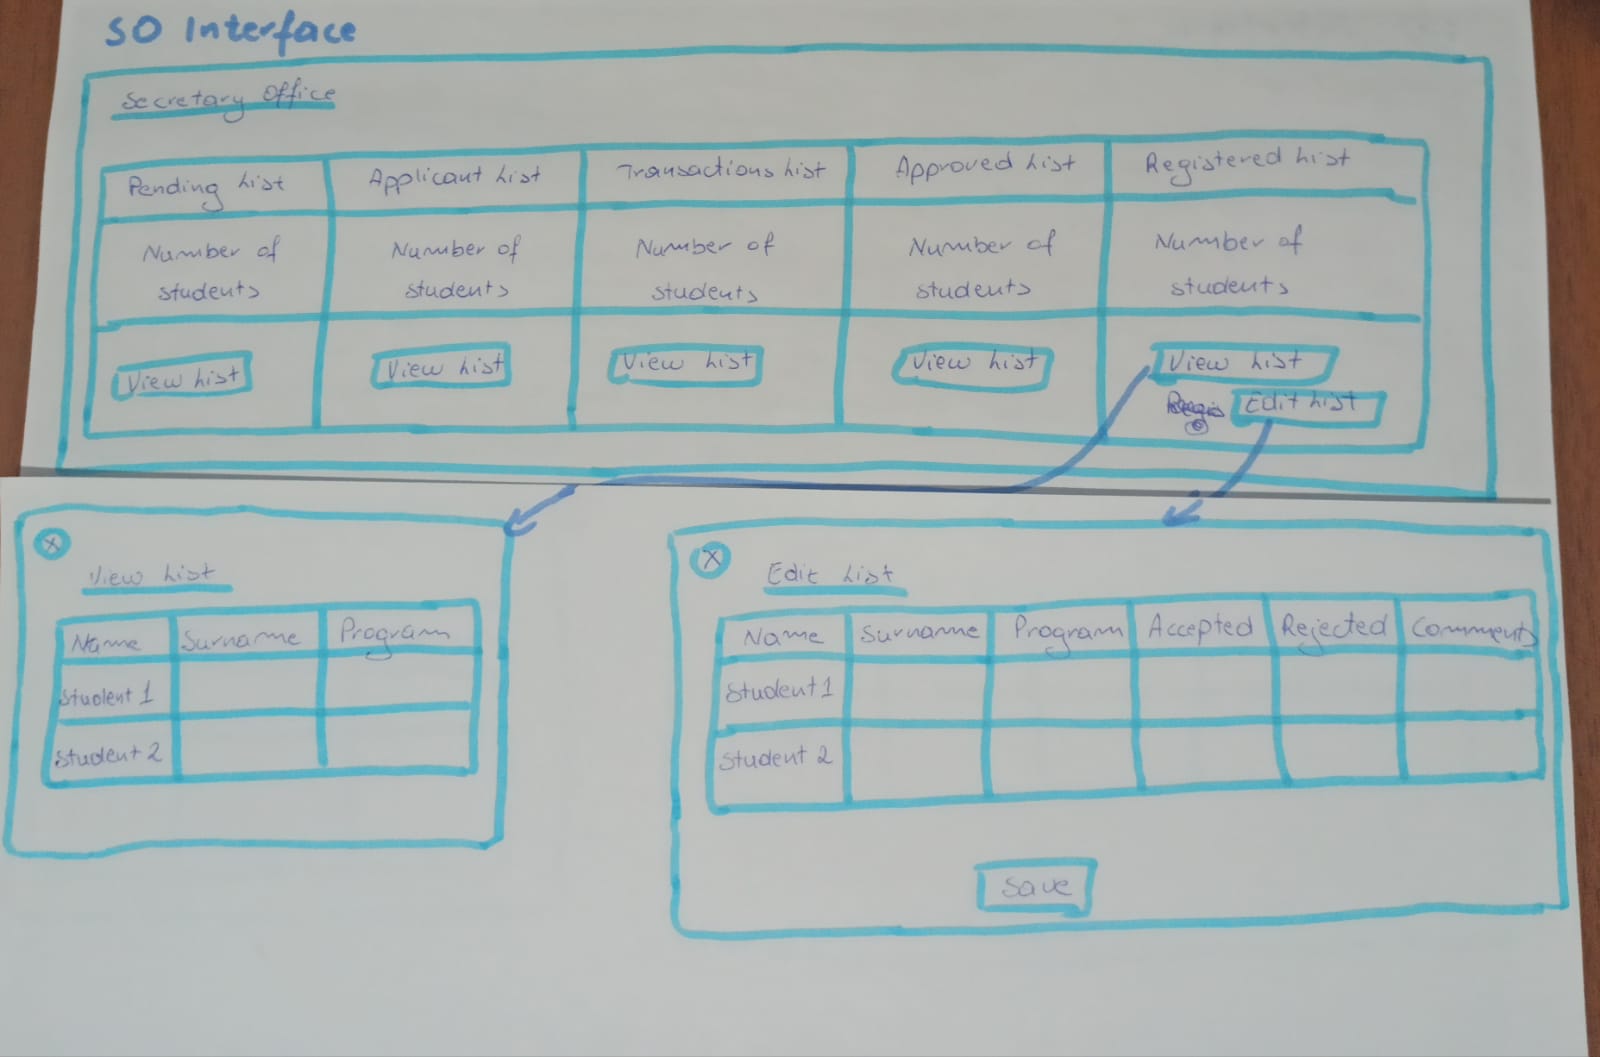 SO Interface
Secretary Office
Pending List
Applicant List
Transactions List
Approved List
Registered List
Number of
students
Number of
students
Number of
students
Number of
students
Number of
students
View List
View List
View List
View List
View List
Edit List
X
View List
Name Surname Program
Student 1
Student 2
X
Edit List
Name Surname Program Accepted Rejected Comments
Student 1
Student 2
Save